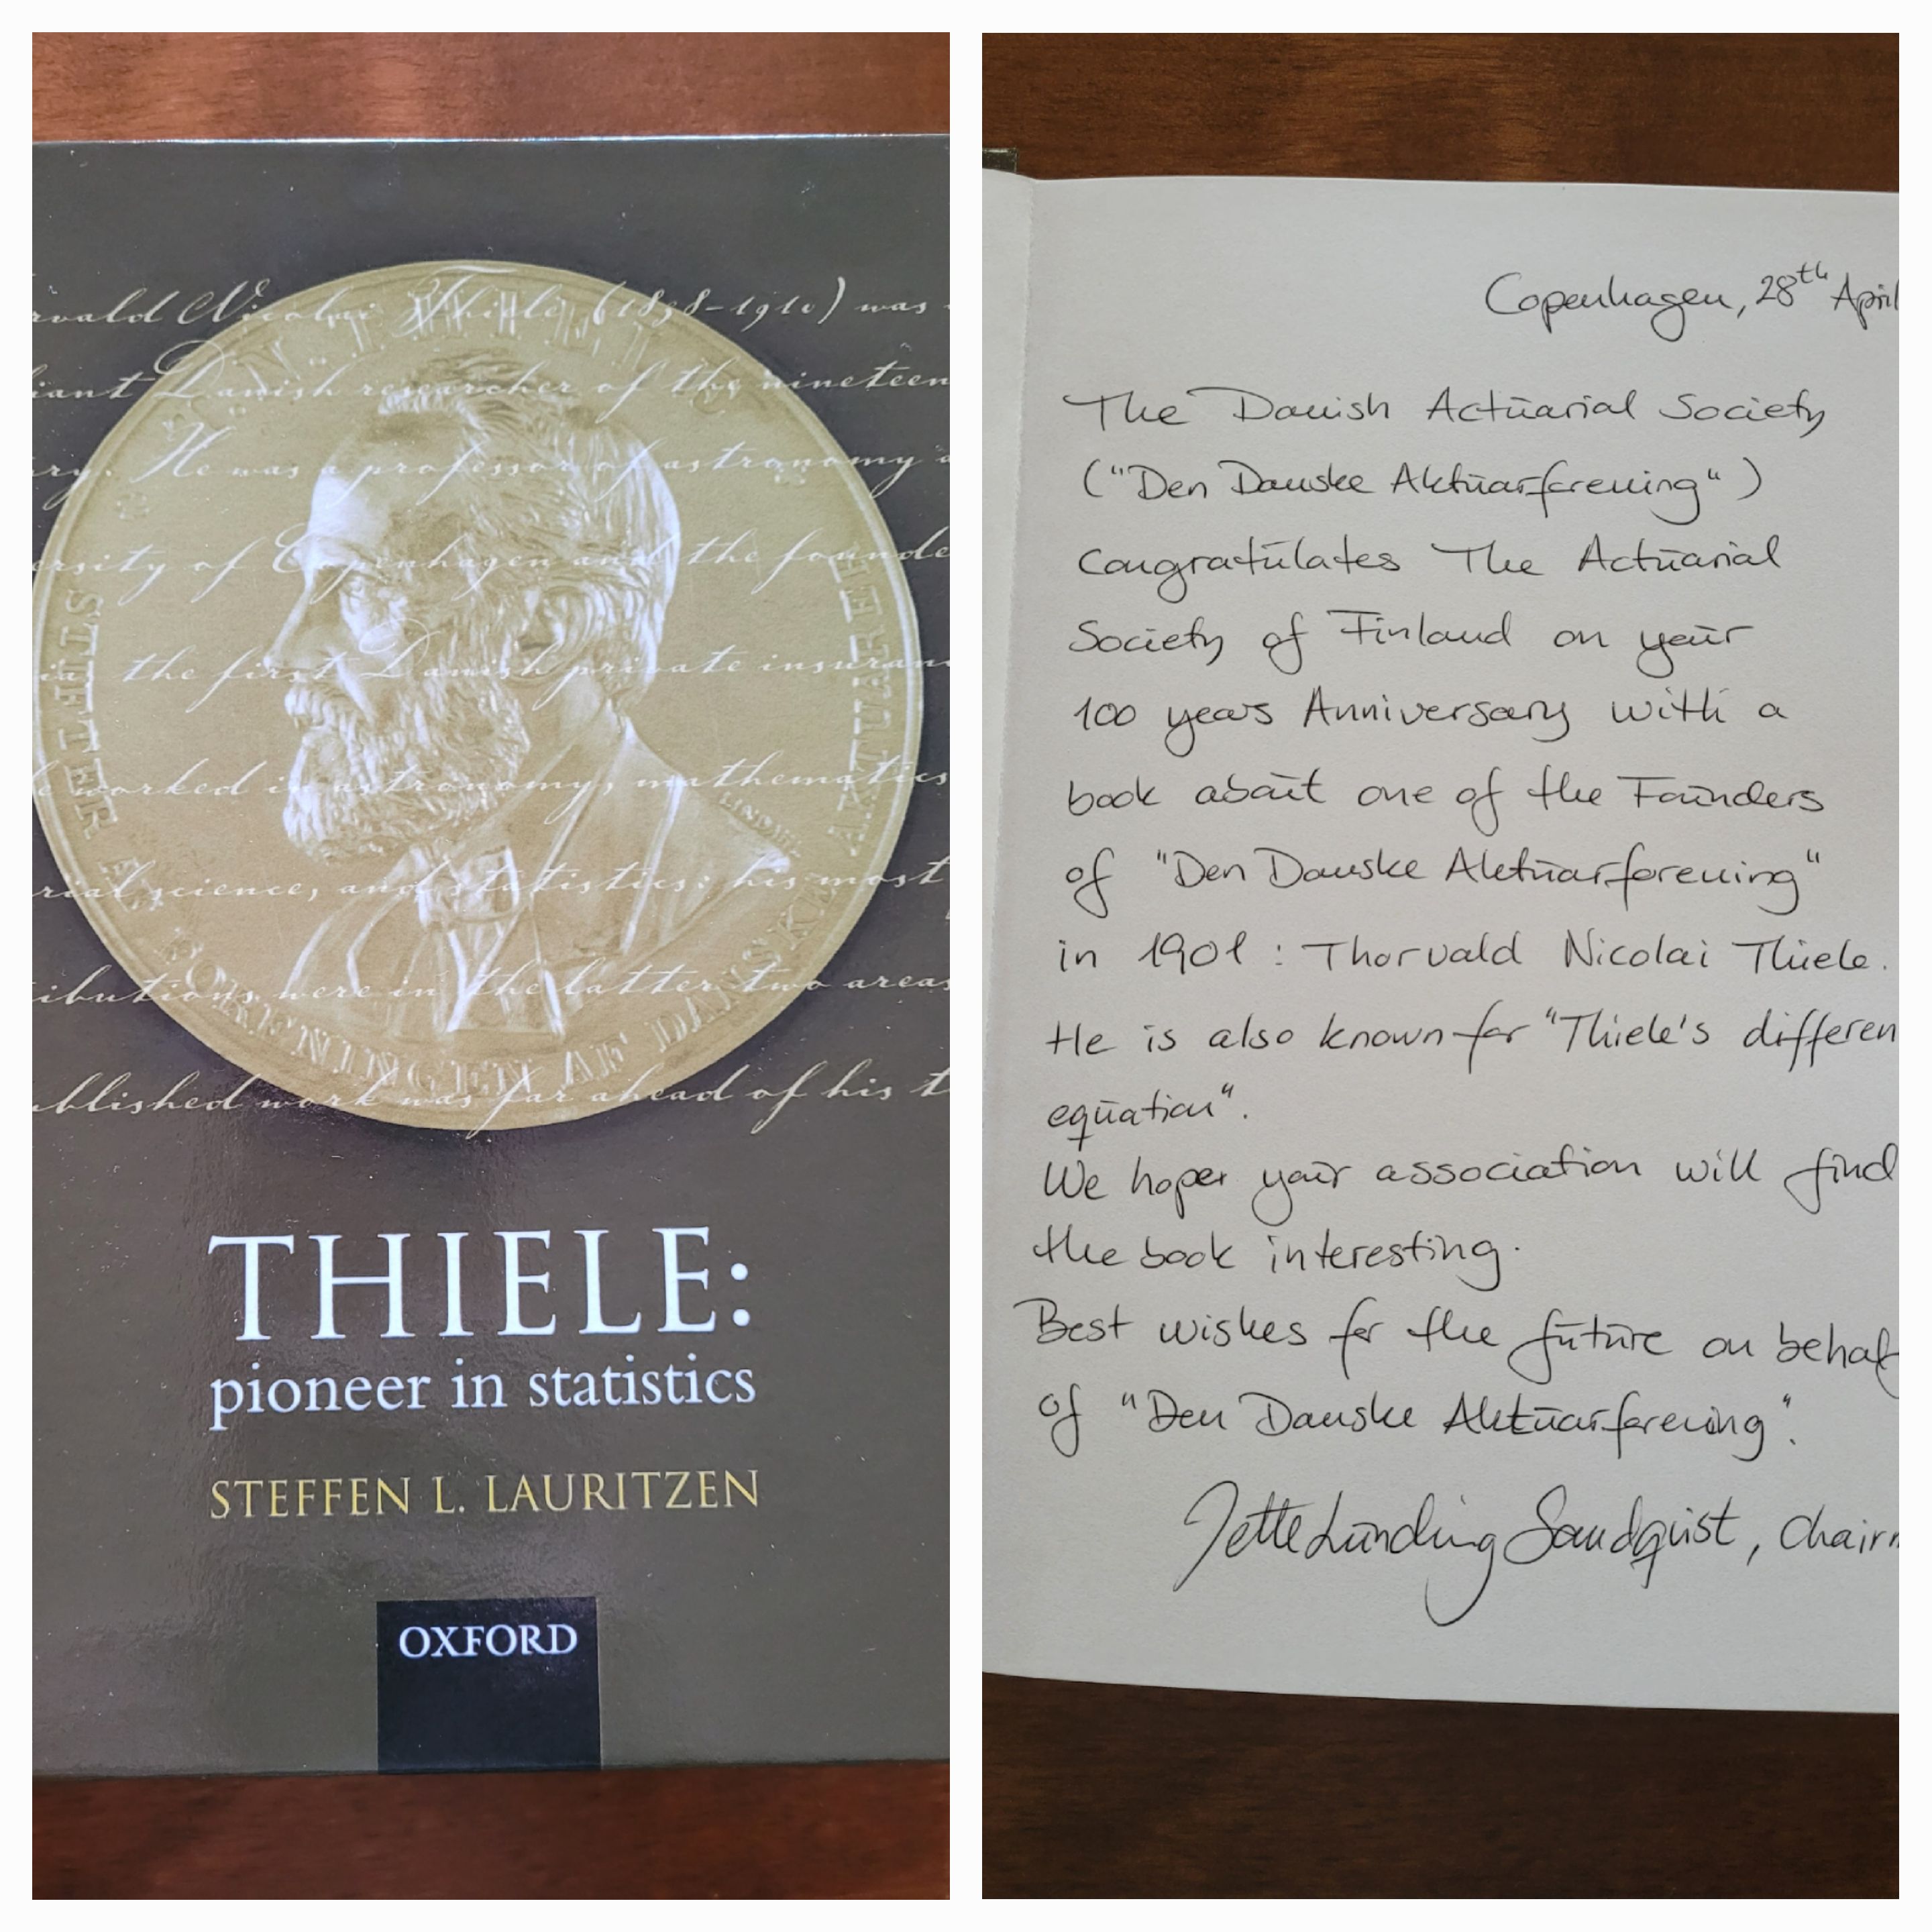 rvald Nicolai Thiele (1838–1910) was
iant Danish researcher of the nineteen
ry. He was a professor of astronomy a
ersity of Copenhagen and the founde
the first Danish private insuran
e worked in astronomy, mathematics
rial science, and statistics: his most
ibutions were in the latter two areas
ublished work was far ahead of his t
T. N. THIELE
STIFTER AF
FORENINGEN AF DANSKE
AKTUARER
THIELE:
pioneer in statistics
STEFFEN L. LAURITZEN
OXFORD
Copenhagen, 28th April
The Danish Actuarial Society
("Den Danske Aktuarforening")
Congratulates The Actuarial
Society of Finland on your
100 years Anniversary with a
book about one of the Founders
of "Den Danske Aktuarforening"
in 1901 : Thorvald Nicolai Thiele.
He is also known for "Thiele's differen
equation".
We hope your association will find
the book interesting.
Best wishes for the future on behalf
of "Den Danske Aktuarforening".
Jette Lunding Sandqvist, Chair